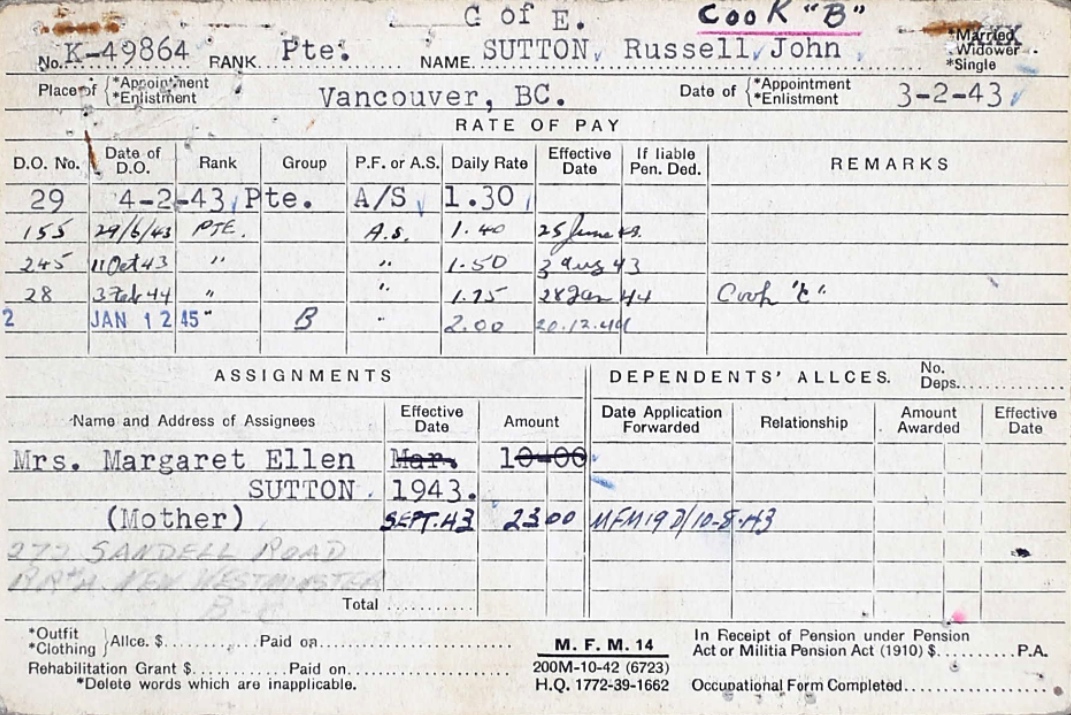 C of E. Cook "B"
No. K-49864 RANK Pte. NAME SUTTON, Russell John *Married *Widower *Single
Place of {*Appointment *Enlistment Vancouver, BC. Date of {*Appointment *Enlistment 3-2-43
RATE OF PAY
D.O. No. Date of D.O. Rank Group P.F. or A.S. Daily Rate Effective Date If liable Pen. Ded. REMARKS
29 4-2-43 Pte. A/S 1.30
155 29/6/43 PTE. A.S. 1.40 25 June 43.
245 11 Oct 43 " " 1.50 3 Aug 43
28 3 Feb 44 " " 1.75 28 Jan 44 Cook "C".
2 JAN 12 45 " B " 2.00 20.12.44
ASSIGNMENTS DEPENDENTS' ALLCES. No. Deps.
Name and Address of Assignees Effective Date Amount Date Application Forwarded Relationship Amount Awarded Effective Date
Mrs. Margaret Ellen Mar. 10-00
SUTTON 1943.
(Mother) SEPT. 43 23 00 MFM19D/10-8-43
272 SANDELL ROAD
RR#4 NEW WESTMINSTER
B-C
Total
*Outfit *Clothing } Allce. $ Paid on In Receipt of Pension under Pension
M. F. M. 14 Act or Militia Pension Act (1910) $ P.A.
Rehabilitation Grant $ Paid on 200M-10-42 (6723)
*Delete words which are inapplicable. H.Q. 1772-39-1662 Occupational Form Completed